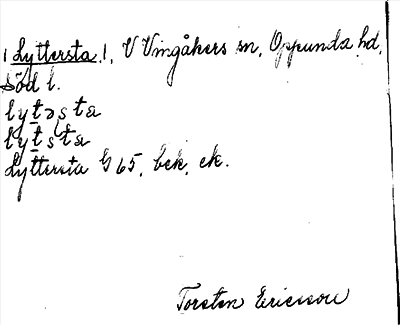 ! Lyttersta !, V Vingåkers sn, Oppunda hd,
Söd l.
lytəsta
lytsta
Lyttersta G 65, bek, ek.
Torsten Ericsson